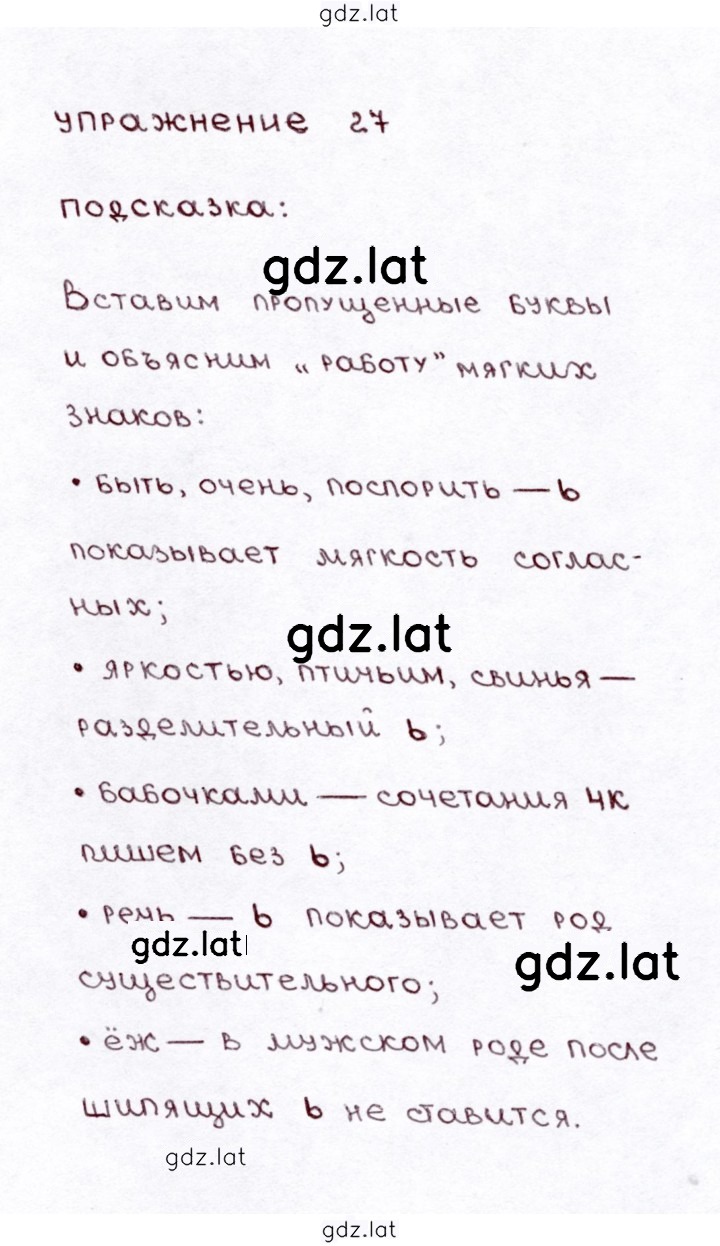 gdz.lat
упражнение 27
подсказка:
gdz.lat
Вставим пропущенные буквы
и объясним „работу” мягких
знаков:
• быть, очень, поспорить — ь
показывает мягкость соглас-
ных;
gdz.lat
• яркостью, птичьим, свинья —
разделительный ь;
• бабочками — сочетания чк
пишем без ь;
• речь — ь показывает род
gdz.lat
gdz.lat
существительного;
• ёж — в мужском роде после
шипящих ь не ставится.
gdz.lat
gdz.lat